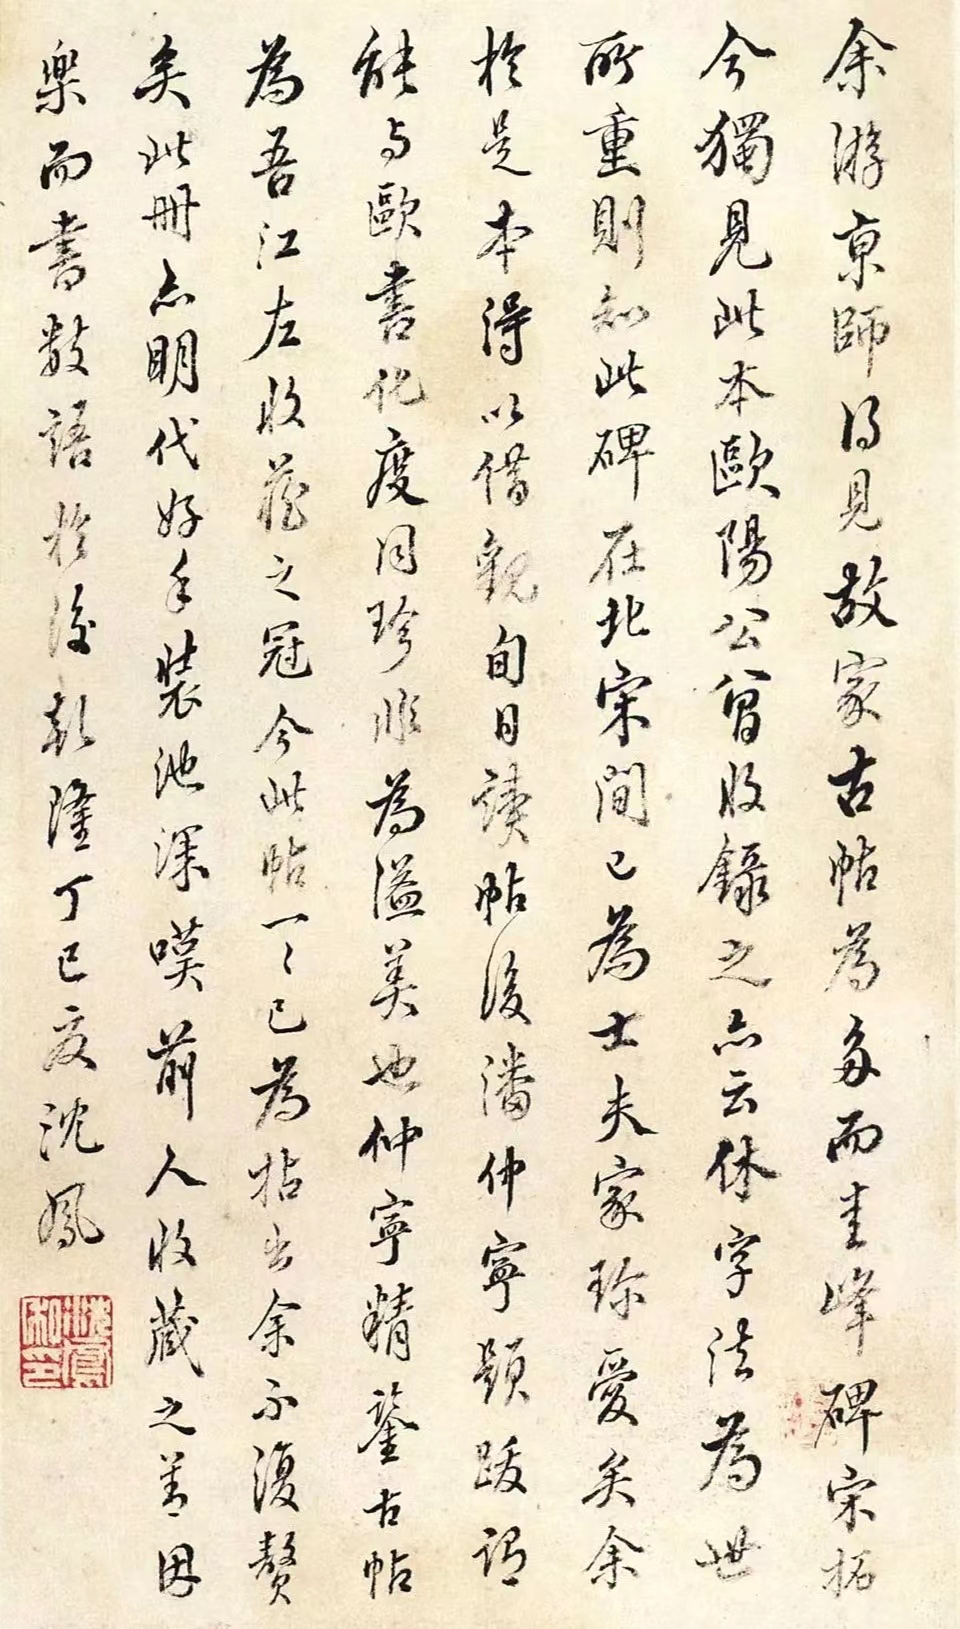 余游京師得見故家古帖為多而圭峰碑宋拓
今獨見此本歐陽公曾收錄之亦云休字法為世
所重則知此碑在北宋間已為士夫家珍愛矣余
於是本得以借觀旬日讀帖後潘仲寧題跋謂
能与歐書化度同珍非為溢美也仲寧精鑒古帖
為吾江左收藏之冠今此帖一々已為拈出余不復贅
矣此冊亦明代好手裝池深嘆前人收藏之善因
樂而書數語於後乾隆丁巳夏沈鳳
沈鳳私印